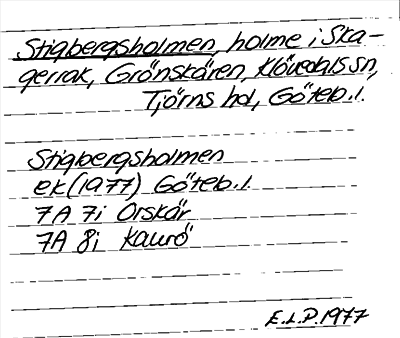 Stigbergsholmen, holme i Ska-
gerrak, Grönskären, Klövedals sn,
Tjörns hd, Göteb. l.
Stigbergsholmen
ek (1977) Göteb. l.
7A 7i Orskär
7A 8i Kaurö
E.L.P. 1977